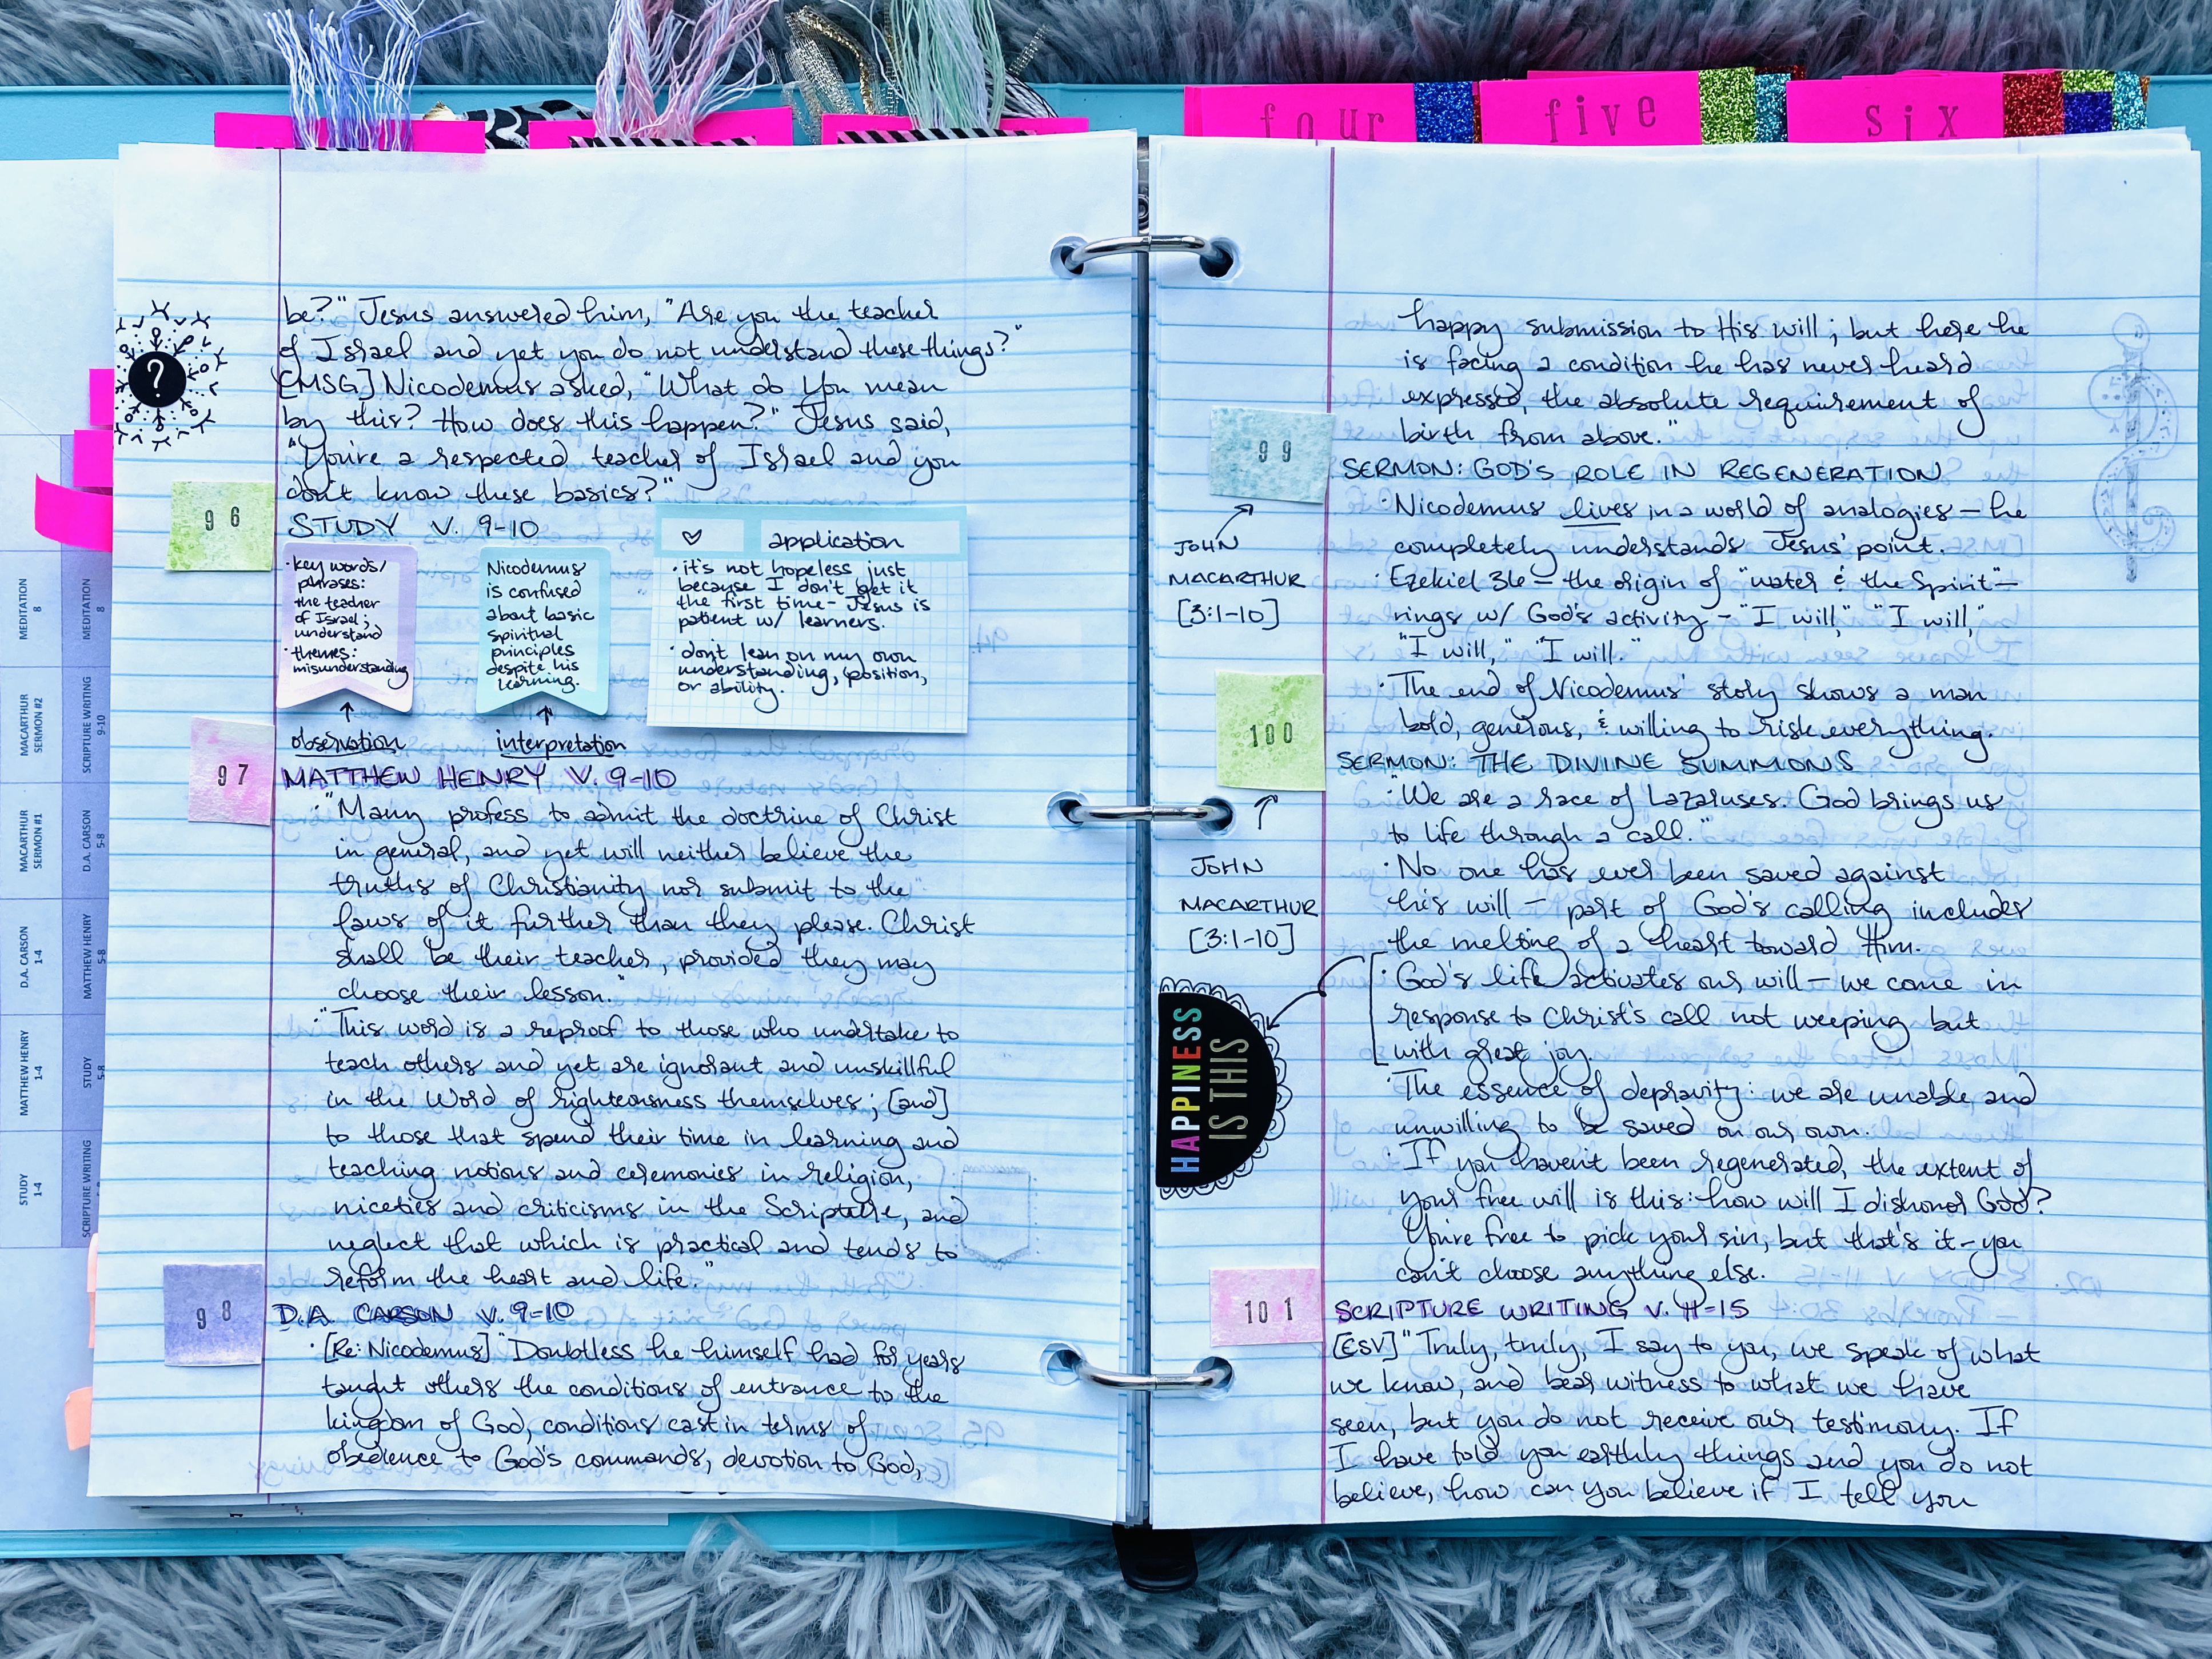 four
five
six
be?" Jesus answered him, "Are you the teacher
of Israel and yet you do not understand these things?"
[MSG] Nicodemus asked, "What do you mean
by this? How does this happen?" Jesus said,
"You're a respected teacher of Israel and you
don't know these basics?"
?
96
STUDY V. 9-10
· key words/
phrases:
the teacher
of Israel;
understand
· themes:
misunderstanding
↑
observation
Nicodemus
is confused
about basic
spiritual
principles
despite his
learning.
↑
interpretation
♡ application
· it's not hopeless just
because I don't get it
the first time - Jesus is
patient w/ learners.
· don't lean on my own
understanding, position,
or ability.
97
MATTHEW HENRY V. 9-10
· "Many profess to admit the doctrine of Christ
in general, and yet will neither believe the
truths of Christianity nor submit to the
laws of it further than they please. Christ
shall be their teacher, provided they may
choose their lesson."
· "This word is a reproof to those who undertake to
teach others and yet are ignorant and unskillful
in the Word of righteousness themselves; [and]
to those that spend their time in learning and
teaching notions and ceremonies in religion,
niceties and criticisms in the Scripture, and
neglect that which is practical and tends to
reform the heart and life."
98
D.A. CARSON V. 9-10
· [Re: Nicodemus] "Doubtless he himself had for years
taught others the conditions of entrance to the
kingdom of God, conditions cast in terms of
obedience to God's commands, devotion to God,
MEDITATION
8
MACARTHUR
SERMON #2
MACARTHUR
SERMON #1
D.A. CARSON
1-4
MATTHEW HENRY
1-4
STUDY
1-4
MEDITATION
8
SCRIPTURE WRITING
9-10
D.A. CARSON
5-8
MATTHEW HENRY
5-8
STUDY
5-8
SCRIPTURE WRITING
happy submission to His will; but here he
is facing a condition he has never heard
expressed, the absolute requirement of
birth from above."
99
JOHN
MACARTHUR
[3:1-10]
SERMON: GOD'S ROLE IN REGENERATION
· Nicodemus lives in a world of analogies - he
completely understands Jesus' point.
· Ezekiel 36 - the origin of "water & the Spirit" -
rings w/ God's activity - "I will," "I will,"
"I will," "I will."
· The end of Nicodemus' story shows a man
bold, generous, & willing to risk everything.
100
JOHN
MACARTHUR
[3:1-10]
SERMON: THE DIVINE SUMMONS
· "We are a race of Lazaruses. God brings us
to life through a call."
· No one has ever been saved against
his will - part of God's calling includes
the melting of a heart toward Him.
· God's life activates our will - we come in
response to Christ's call not weeping but
with great joy.
HAPPINESS
IS THIS
· The essence of depravity: we are unable and
unwilling to be saved on our own.
· If you haven't been regenerated, the extent of
your free will is this: how will I dishonor God?
You're free to pick your sin, but that's it - you
can't choose anything else.
101
SCRIPTURE WRITING V. 11-15
[ESV] "Truly, truly, I say to you, we speak of what
we know, and bear witness to what we have
seen, but you do not receive our testimony. If
I have told you earthly things and you do not
believe, how can you believe if I tell you